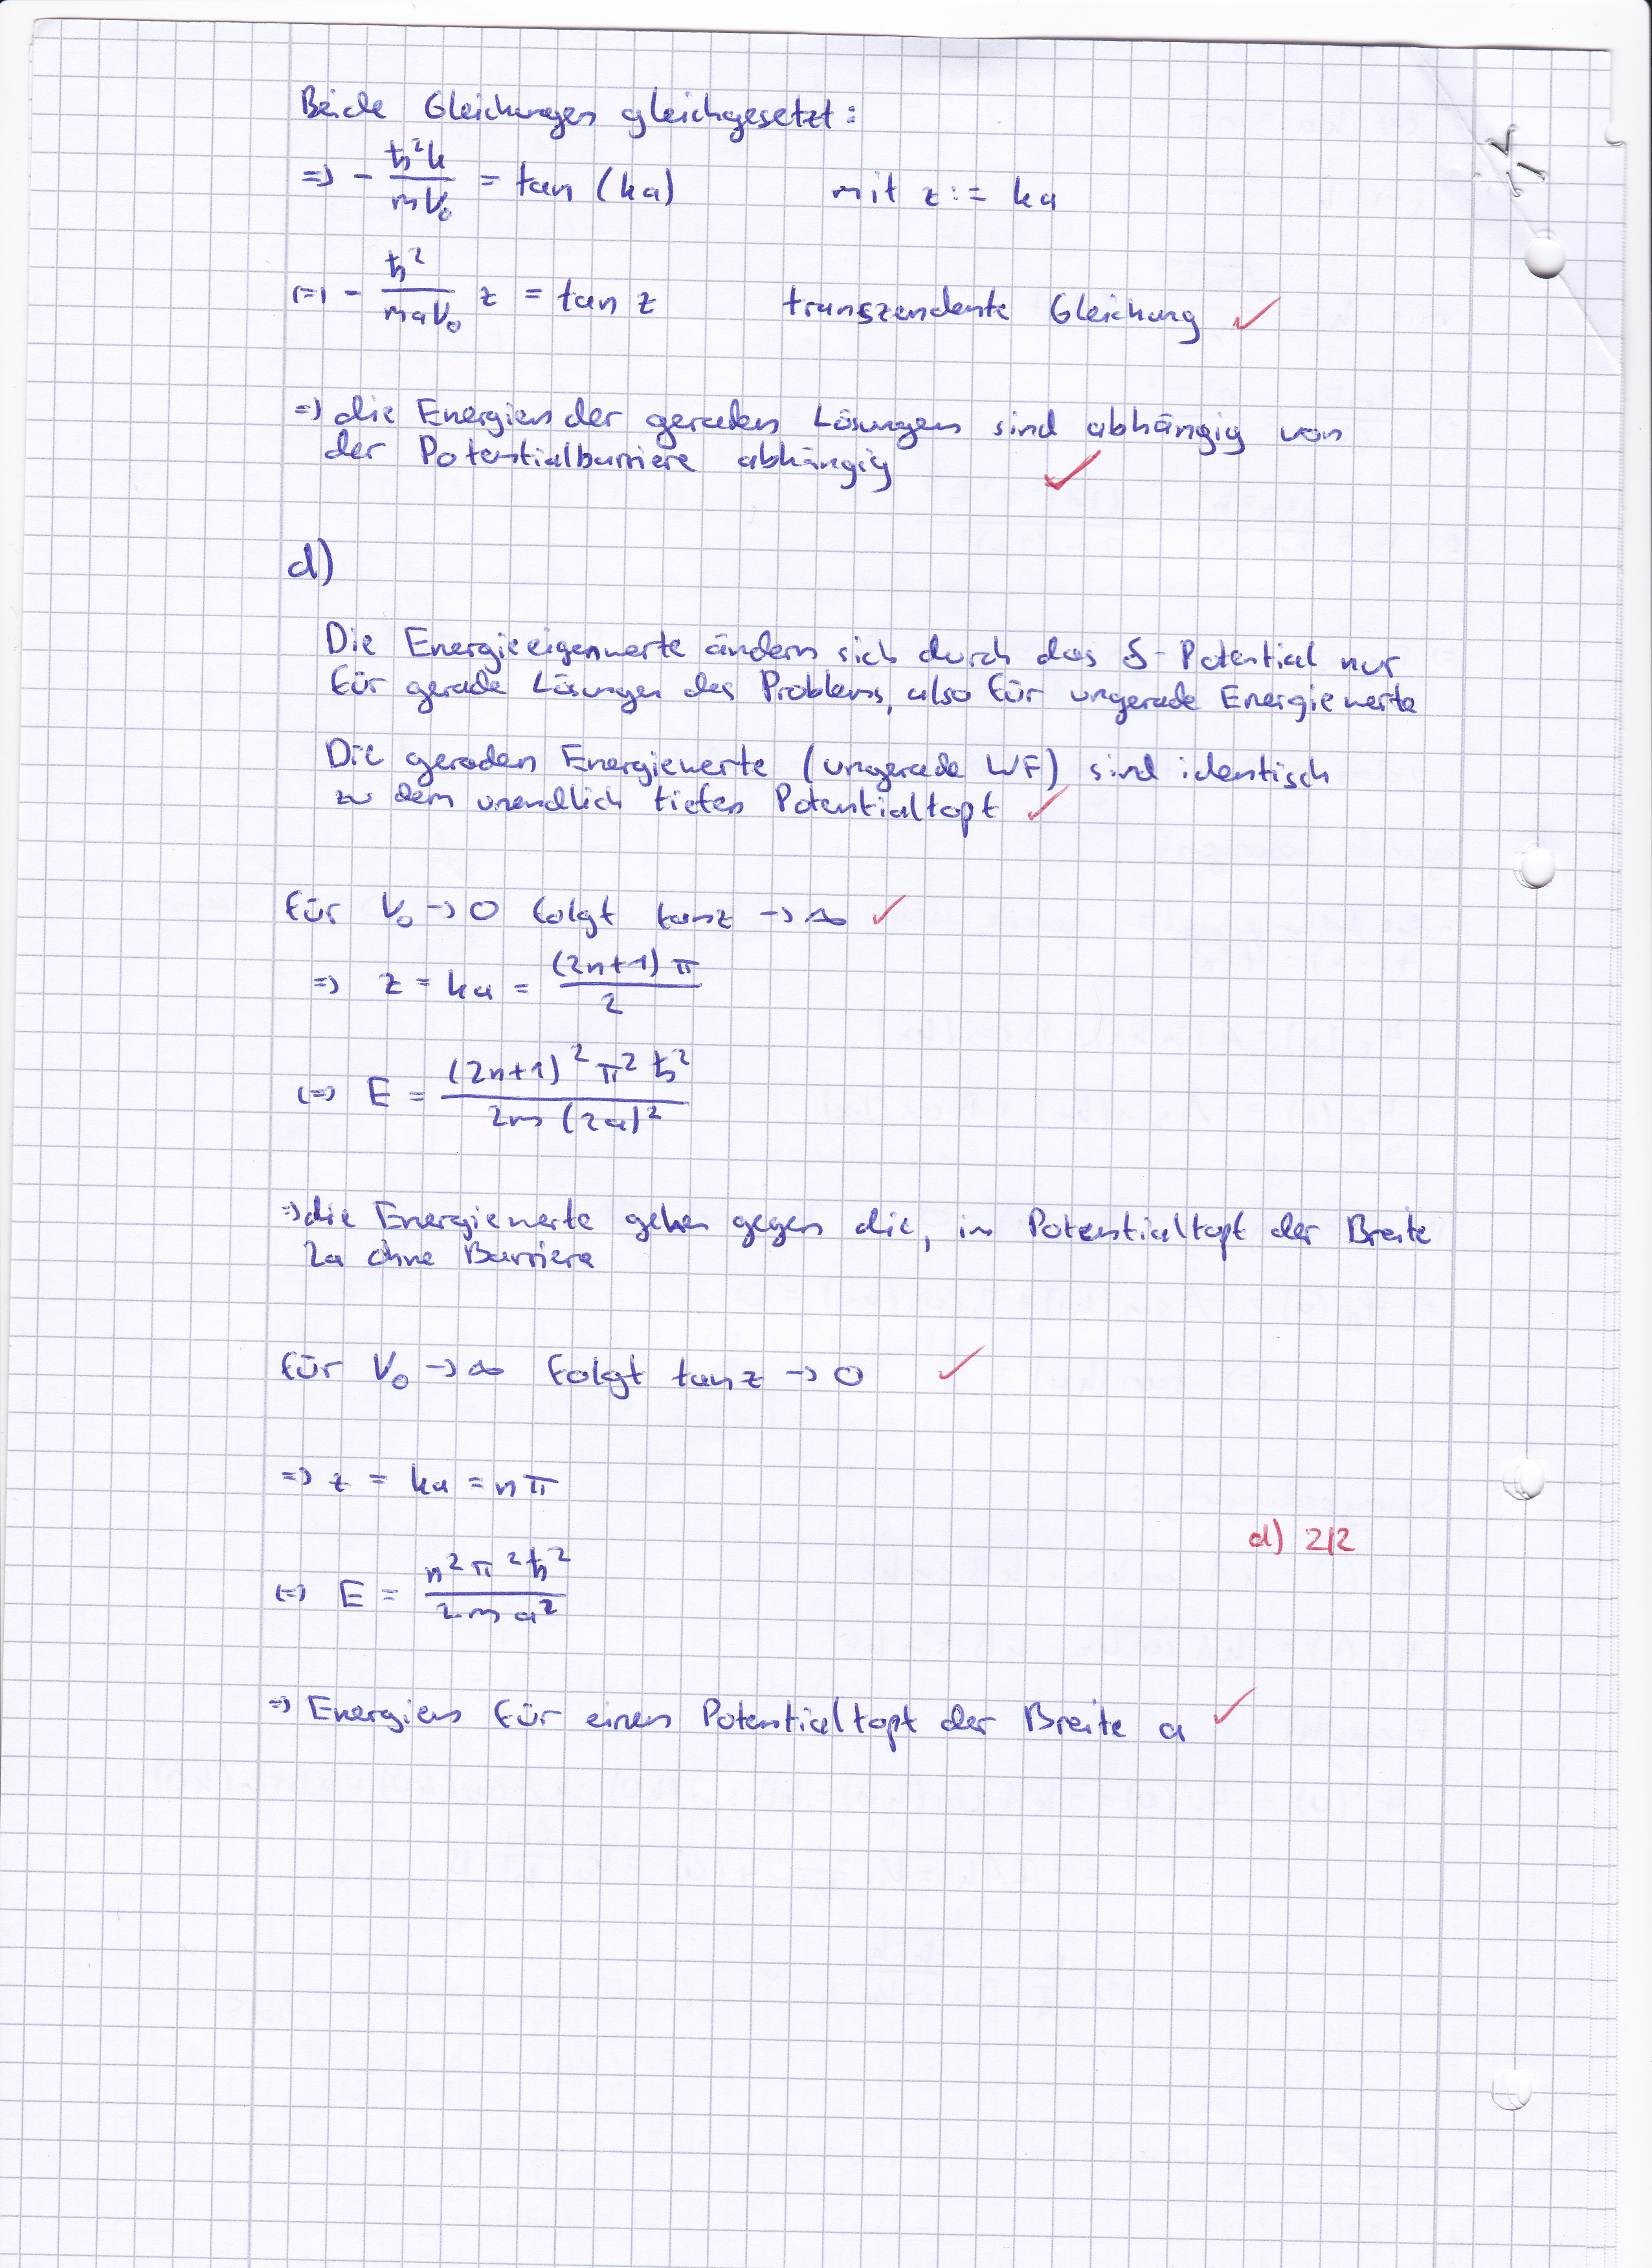 Beide Gleichungen gleichgesetzt:
=> - ħ²k / mV₀ = tan (ka) mit z := ka
<=> - ħ² / maV₀ z = tan z transzendente Gleichung ✓
=> die Energien der geraden Lösungen sind abhängig von
der Potentialbarriere abhängig ✓
d)
Die Energieeigenwerte ändern sich durch das δ-Potential nur
für gerade Lösungen des Problems, also für ungerade Energiewerte
Die geraden Energiewerte (ungerade WF) sind identisch
zu dem unendlich tiefen Potentialtopf ✓
für V₀ -> 0 folgt tan z -> ∞ ✓
=> z = ka = (2n+1) π / 2
<=> E = (2n+1)² π² ħ² / 2m (2a)²
=> die Energiewerte gehen gegen die, im Potentialtopf der Breite
2a ohne Barriere
für V₀ -> ∞ folgt tan z -> 0 ✓
=> z = ka = nπ
d) 2/2
<=> E = n² π² ħ² / 2m a²
=> Energien für einen Potentialtopf der Breite a ✓